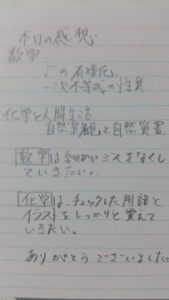 本日の感想
数学
√の有理化
一次不等式の性質
化学と人間生活
自然景観と自然災害
数学は細かいミスをなくし
ていきたい。
化学は、チェックした用語と
イラストをしっかりと覚えて
いきたい。
ありがとうございました